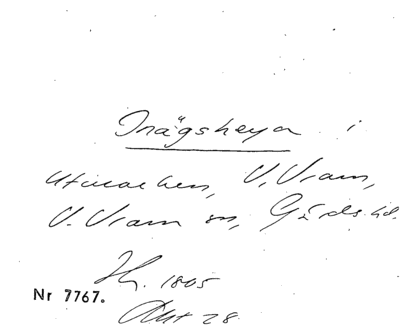 Inägsheya i
Utmarken, V. Vram,
V. Vram sn, Gärds hd.
1805
Nr 7767.
Akt 28